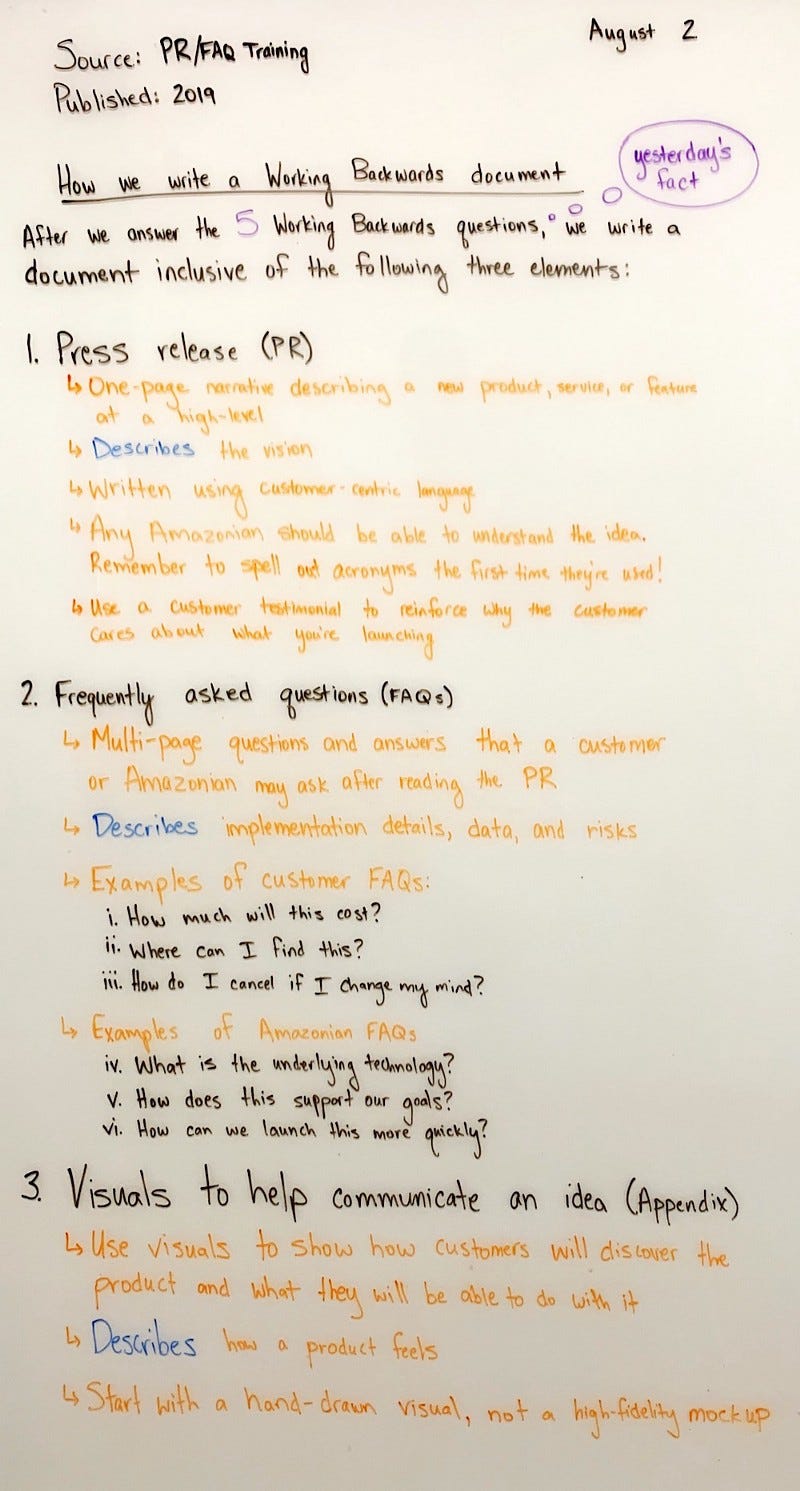 August 2
Source: PR/FAQ Training
Published: 2019
How we write a Working Backwards document
yesterday's
fact
After we answer the 5 Working Backwards questions, we write a
document inclusive of the following three elements:
1. Press release (PR)
↳ One-page narrative describing a new product, service, or feature
at a high-level
↳ Describes the vision
↳ Written using customer-centric language
↳ Any Amazonian should be able to understand the idea.
Remember to spell out acronyms the first time they're used!
↳ Use a customer testimonial to reinforce why the customer
cares about what you're launching
2. Frequently asked questions (FAQs)
↳ Multi-page questions and answers that a customer
or Amazonian may ask after reading the PR
↳ Describes implementation details, data, and risks
↳ Examples of customer FAQs:
i. How much will this cost?
ii. Where can I find this?
iii. How do I cancel if I change my mind?
↳ Examples of Amazonian FAQs
iv. What is the underlying technology?
v. How does this support our goals?
vi. How can we launch this more quickly?
3. Visuals to help communicate an idea (Appendix)
↳ Use visuals to show how customers will discover the
product and what they will be able to do with it
↳ Describes how a product feels
↳ Start with a hand-drawn visual, not a high-fidelity mockup